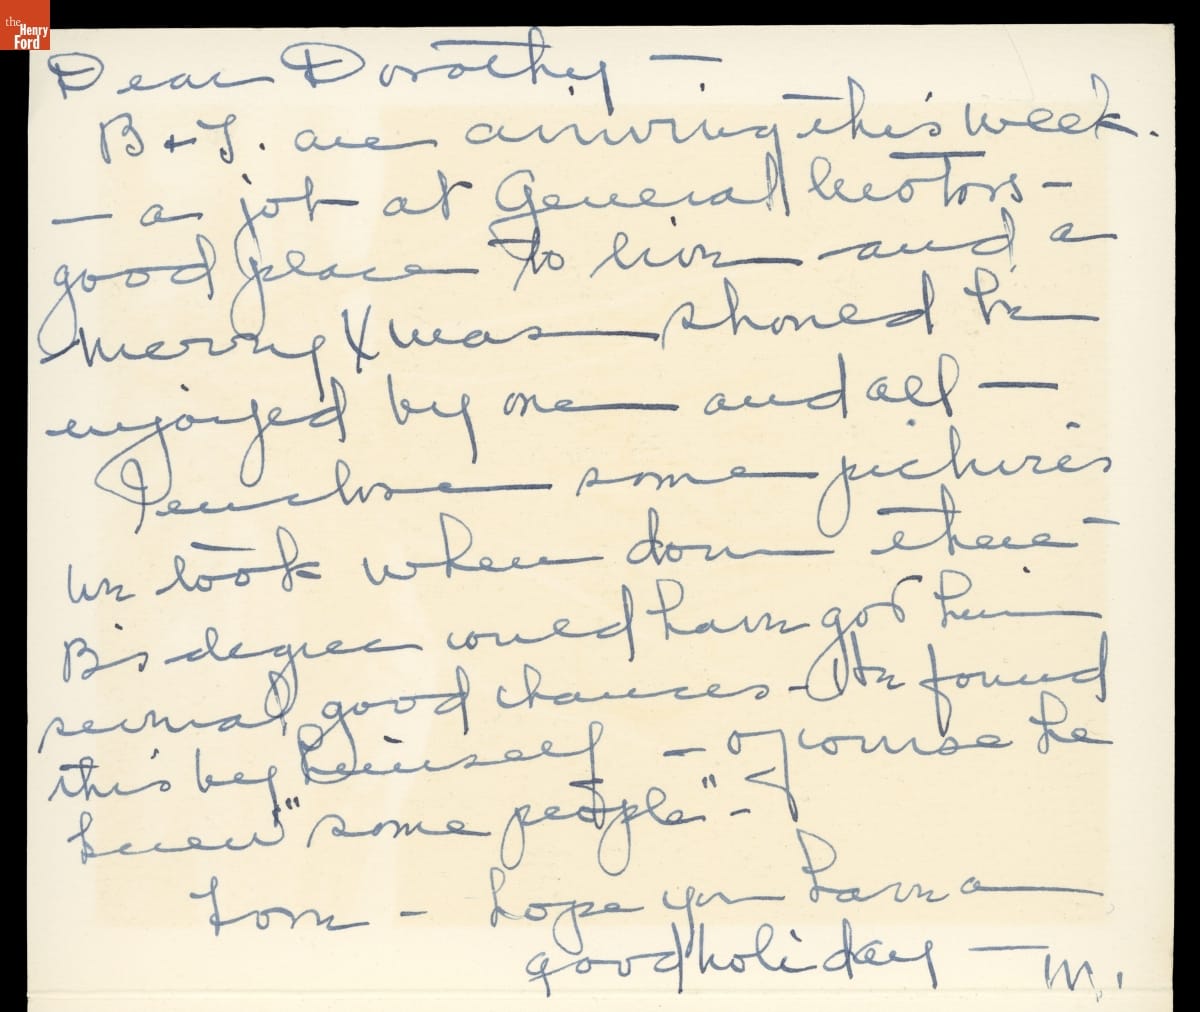 the
Henry
Ford
Dear Dorothy —
B + J. are arriving this week.
— a job at General Motors —
good place to live and a
merry Xmas should be
enjoyed by one and all —
I enclose some pictures
we took when down there —
B's degree could have got him
several good chances - He found
this by himself - of course he
knew "some people" -
Love - hope you have a
good holiday — M.